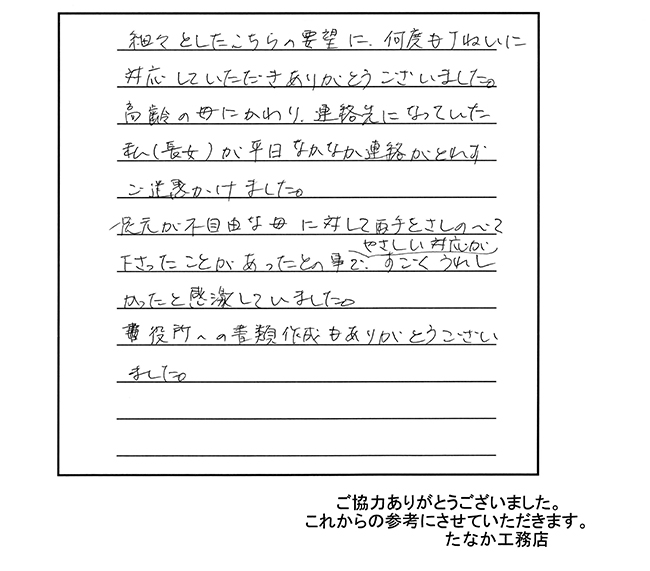 細々としたこちらの要望に、何度も丁ねいに
対応していただきありがとうございました。
高齢の母にかわり、連絡先になっていた
私(長女)が平日なかなか連絡がとれず
ご迷惑かけました。
足元が不自由な母に対して手をさしのべて
やさしい対応が
下さったことがあったとの事で、すごくうれし
かったと感激していました。
役所への書類作成もありがとうござい
ました。
ご協力ありがとうございました。
これからの参考にさせていただきます。
たなか工務店